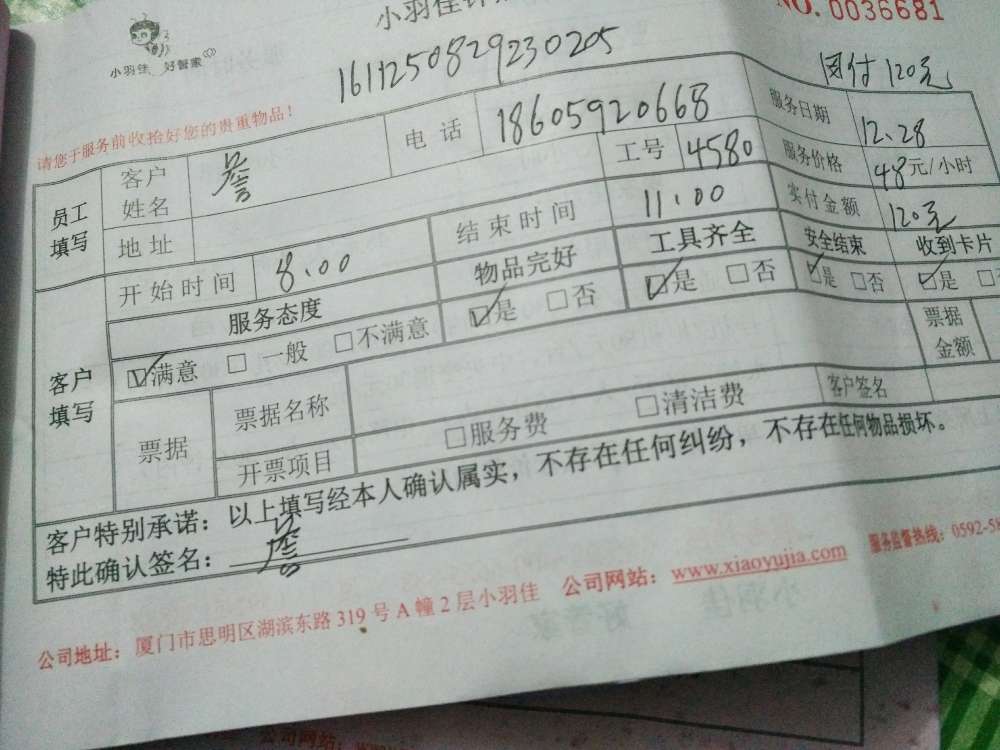 小羽佳 好管家
小羽佳钟
NO. 0036681
1611250829230205
团付 120元
请您于服务前收拾好您的贵重物品！
员工填写
客户姓名 詹 电话 18605920668 服务日期 12.28
地址 工号 4580 服务价格 48元/小时
开始时间 8:00 结束时间 11:00 实付金额 120元
客户填写
服务态度 物品完好 工具齐全 安全结束 收到卡片
☑满意 □一般 □不满意 ☑是 □否 ☑是 □否 ☑是 □否 ☑是 □
票据 票据名称 票据金额
开票项目 □服务费 □清洁费 客户签名
客户特别承诺：以上填写经本人确认属实，不存在任何纠纷，不存在任何物品损坏。
特此确认签名：詹
公司地址：厦门市思明区湖滨东路319号A幢2层小羽佳 公司网站：www.xiaoyujia.com 服务监督热线：0592-5
小羽佳
好管家
公司网站：